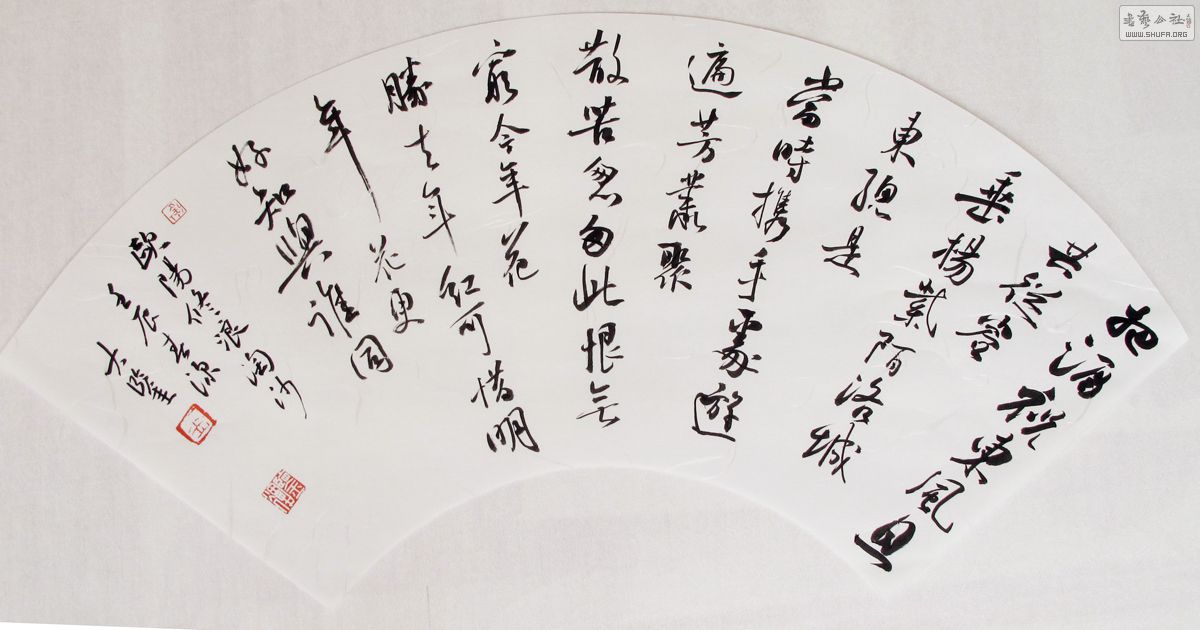 把酒祝東風且
共從容
垂楊紫陌洛城
東總是
當時携手處遊
遍芳叢聚
散苦怱匆此恨無
窮今年花
勝去年紅可惜明
年花更
好知與誰同
歐陽修浪淘沙
壬辰春深
大隆
書藝公社
WWW.SHUFA.ORG